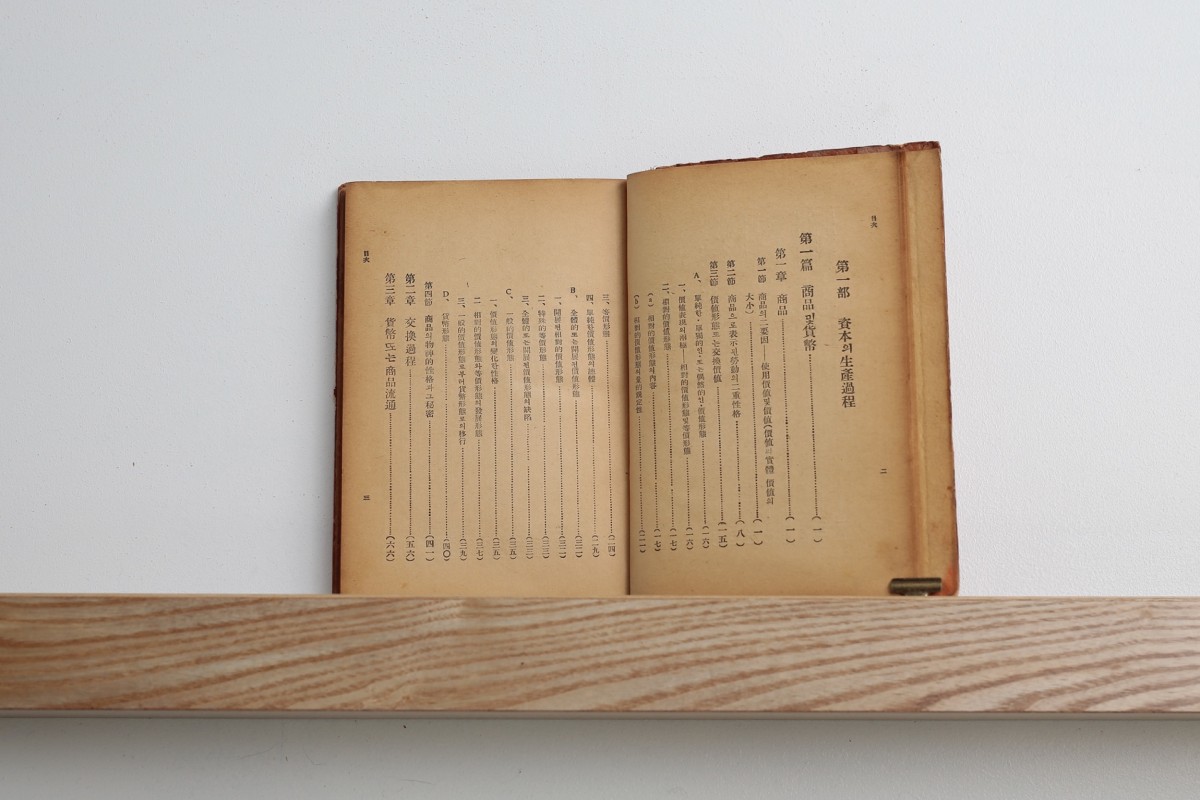 目次
第一部 資本의生產過程
第一篇 商品및貨幣………(一)
第一章 商品………(一)
第一節 商品의二要因──使用價値및價値(價値의實體 價値의
大小)………(一)
第二節 商品으로表示된勞動의二重性格………(八)
第三節 價値形態또는交換價値………(一五)
A、單純한・單獨的인・또는偶然的인價値形態………(一六)
一、價値表現의兩極──相對的價値形態및等價形態………(一六)
二、相對的價値形態………(一七)
(a) 相對的價値形態의內容………(一七)
(b) 相對的價値形態의量的規定性………(二一)
二
三、等價形態………(二四)
四、單純한價値形態의總體………(二九)
B、全體的또는開展된價値形態………(三二)
一、開展된相對的價値形態………(三二)
二、特殊的等價形態………(三三)
三、全體的또는開展된價値形態의缺陷………(三三)
C、一般的價値形態………(三五)
一、價値形態의變化한性格………(三五)
二、相對的價値形態와等價形態의發展形態………(三七)
三、一般的價値形態로부터貨幣形態로의移行………(三九)
D、貨幣形態………(四〇)
第四節 商品의物神的性格과그秘密………(四一)
第二章 交換過程………(五六)
第三章 貨幣또는商品流通………(六六)
目次
三